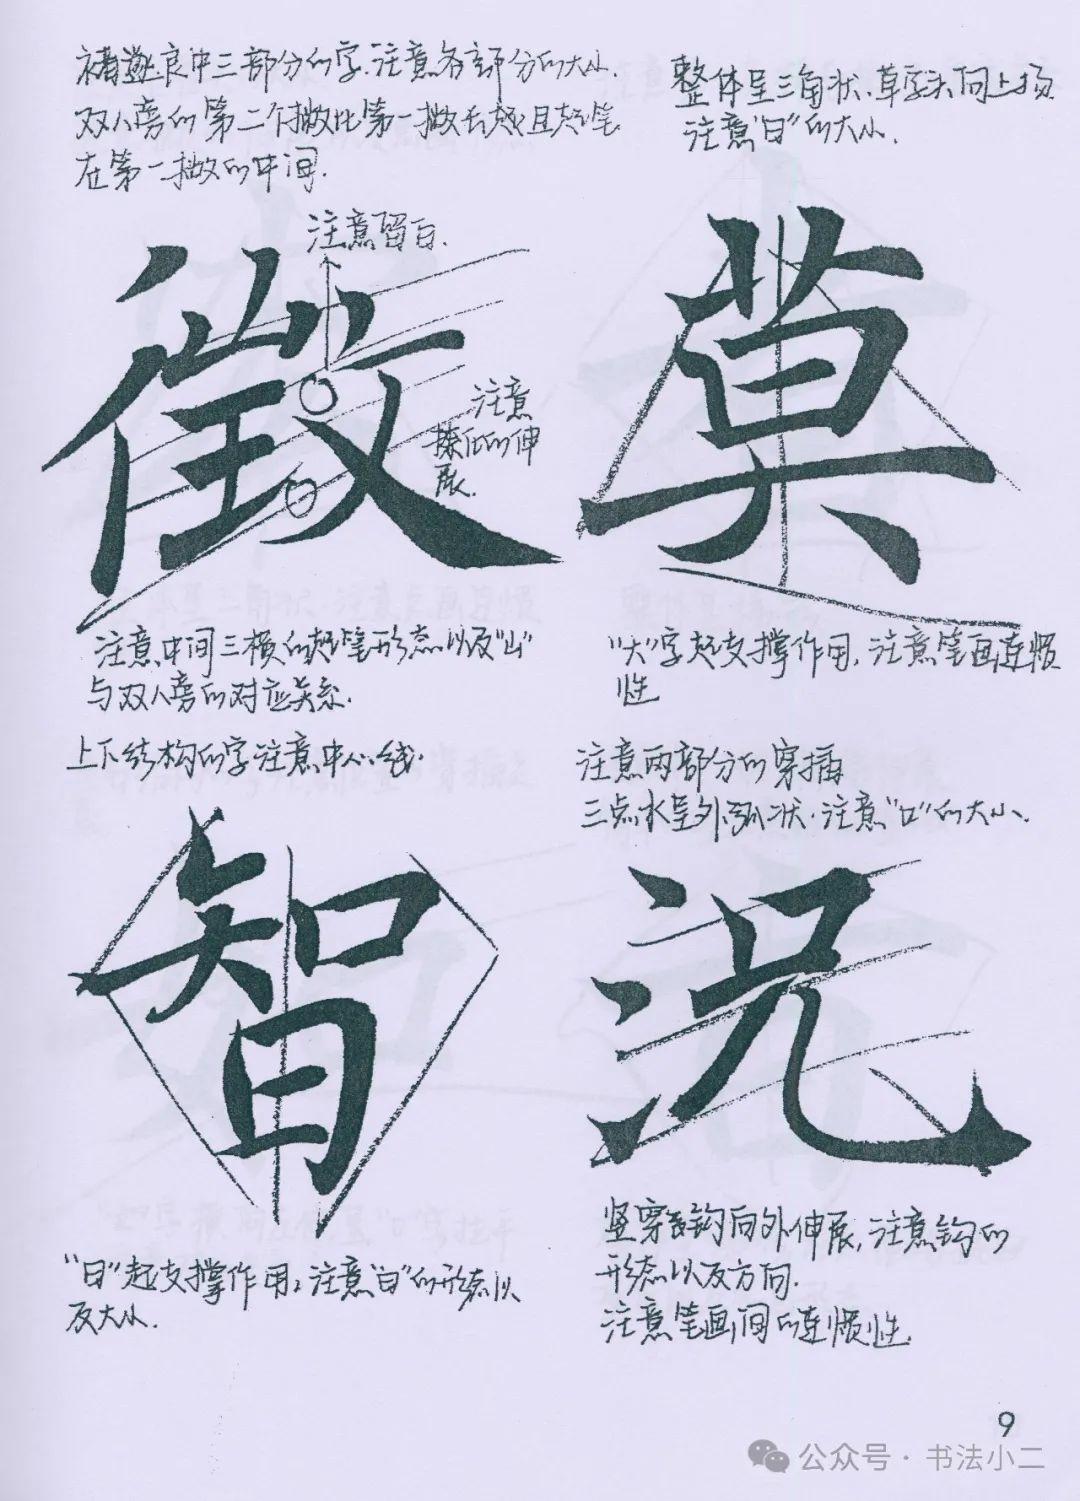 褚遂良中三部分的字.注意各部分的大小.
双人旁的第二个撇比第一撇长越且起笔
在第一撇的中间.
注意留白.
徵
注意
捺化的伸
展.
注意中间三横的起笔形态以及"山"
与双人旁的对应关系.
整体呈三角状.草字头向上扬
注意"日"的大小.
莫
"大"字起支撑作用,注意笔画连惯
性
上下结构的字注意中心线.
智
"日"起支撑作用,注意"日"的形态以
及大小.
注意两部分的穿插
三点水呈外弧状.注意"口"的大小、
况
竖弯钩向外伸展,注意钩的
形态以及方向.
注意笔画间的连惯性
9
公众号·书法小二